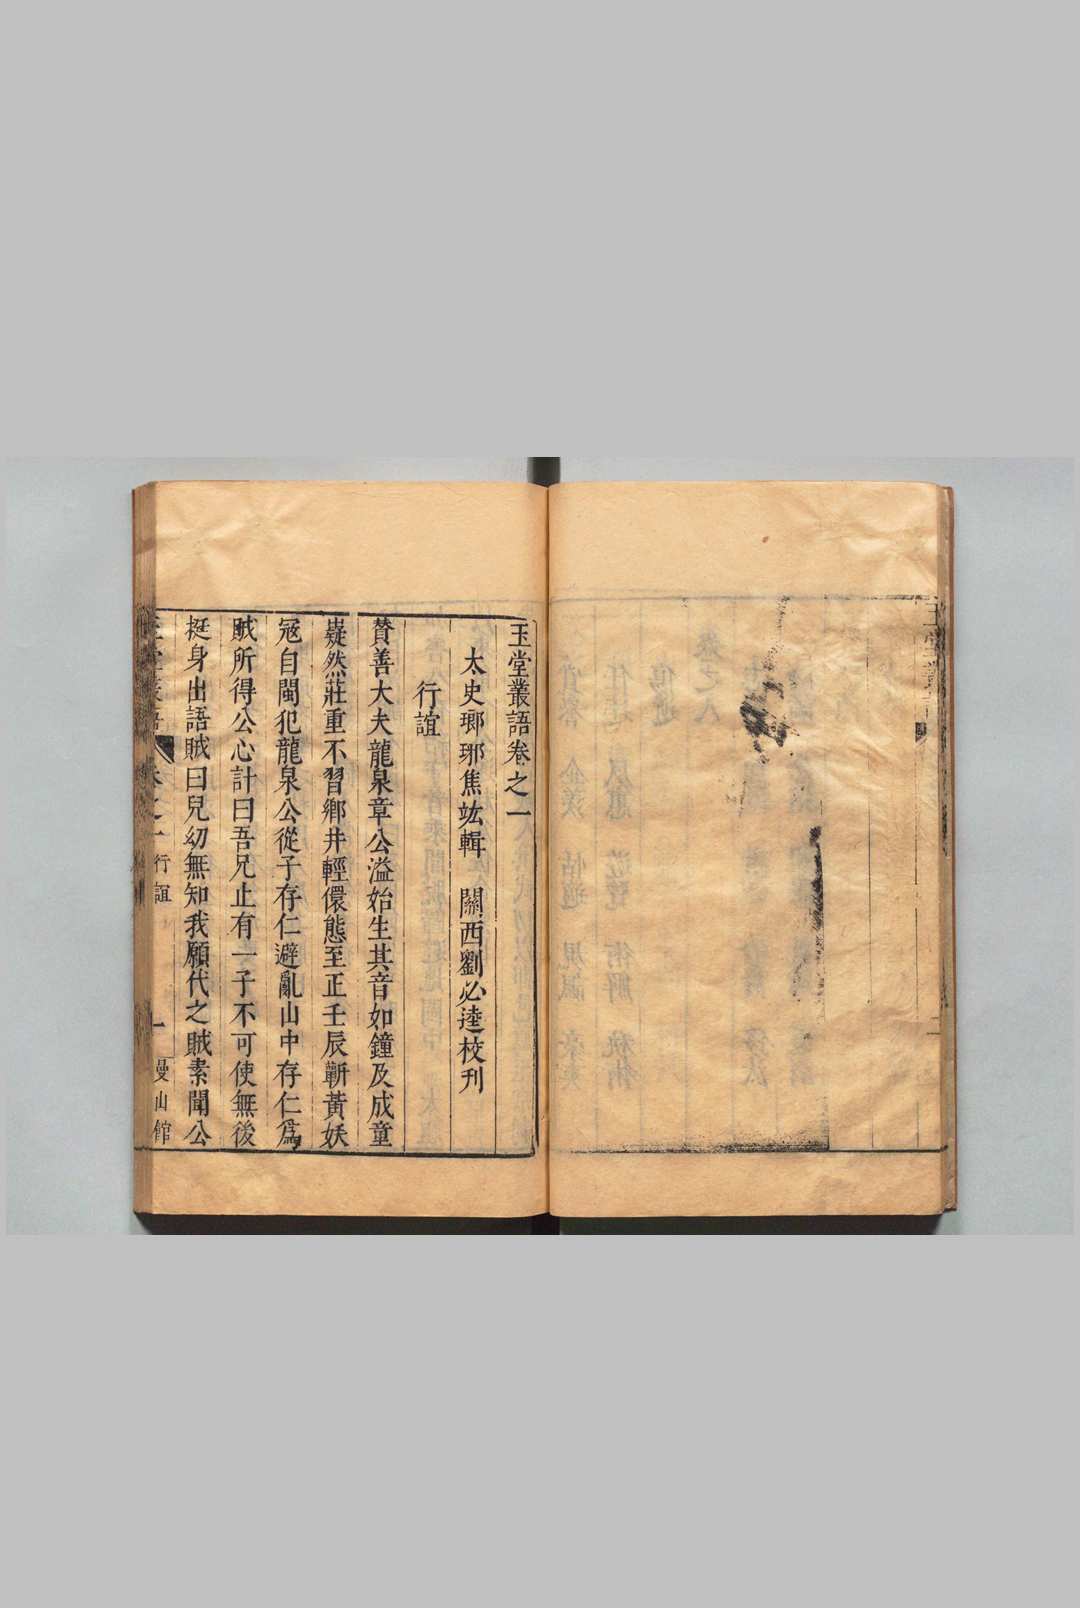 玉堂叢語卷之一
太史瑯琊焦竑輯 關西劉必達校刊
行誼
贊善大夫龍泉章公溢始生其音如鐘及成童
嶷然莊重不習鄉井輕儇態至正壬辰蘄黃妖
冦自閩犯龍泉公從子存仁避亂山中存仁爲
賊所得公心計曰吾兄止有一子不可使無後
挺身出語賊曰兒幼無知我願代之賊素聞公
玉堂叢語 卷之一 行誼 一 曼山館